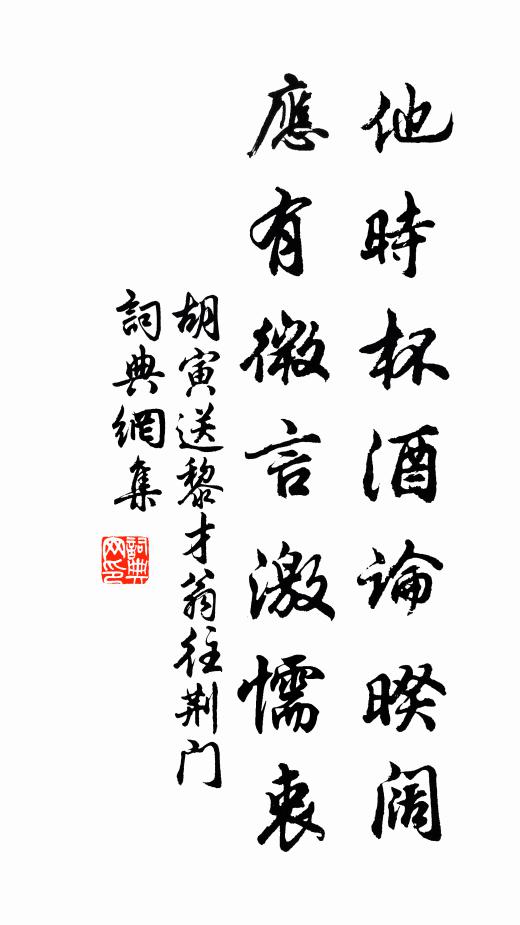 他時杯酒論暌闊
應有微言激懦衷
胡寅送黎才翁往荆门
詞典網集
詞典网印